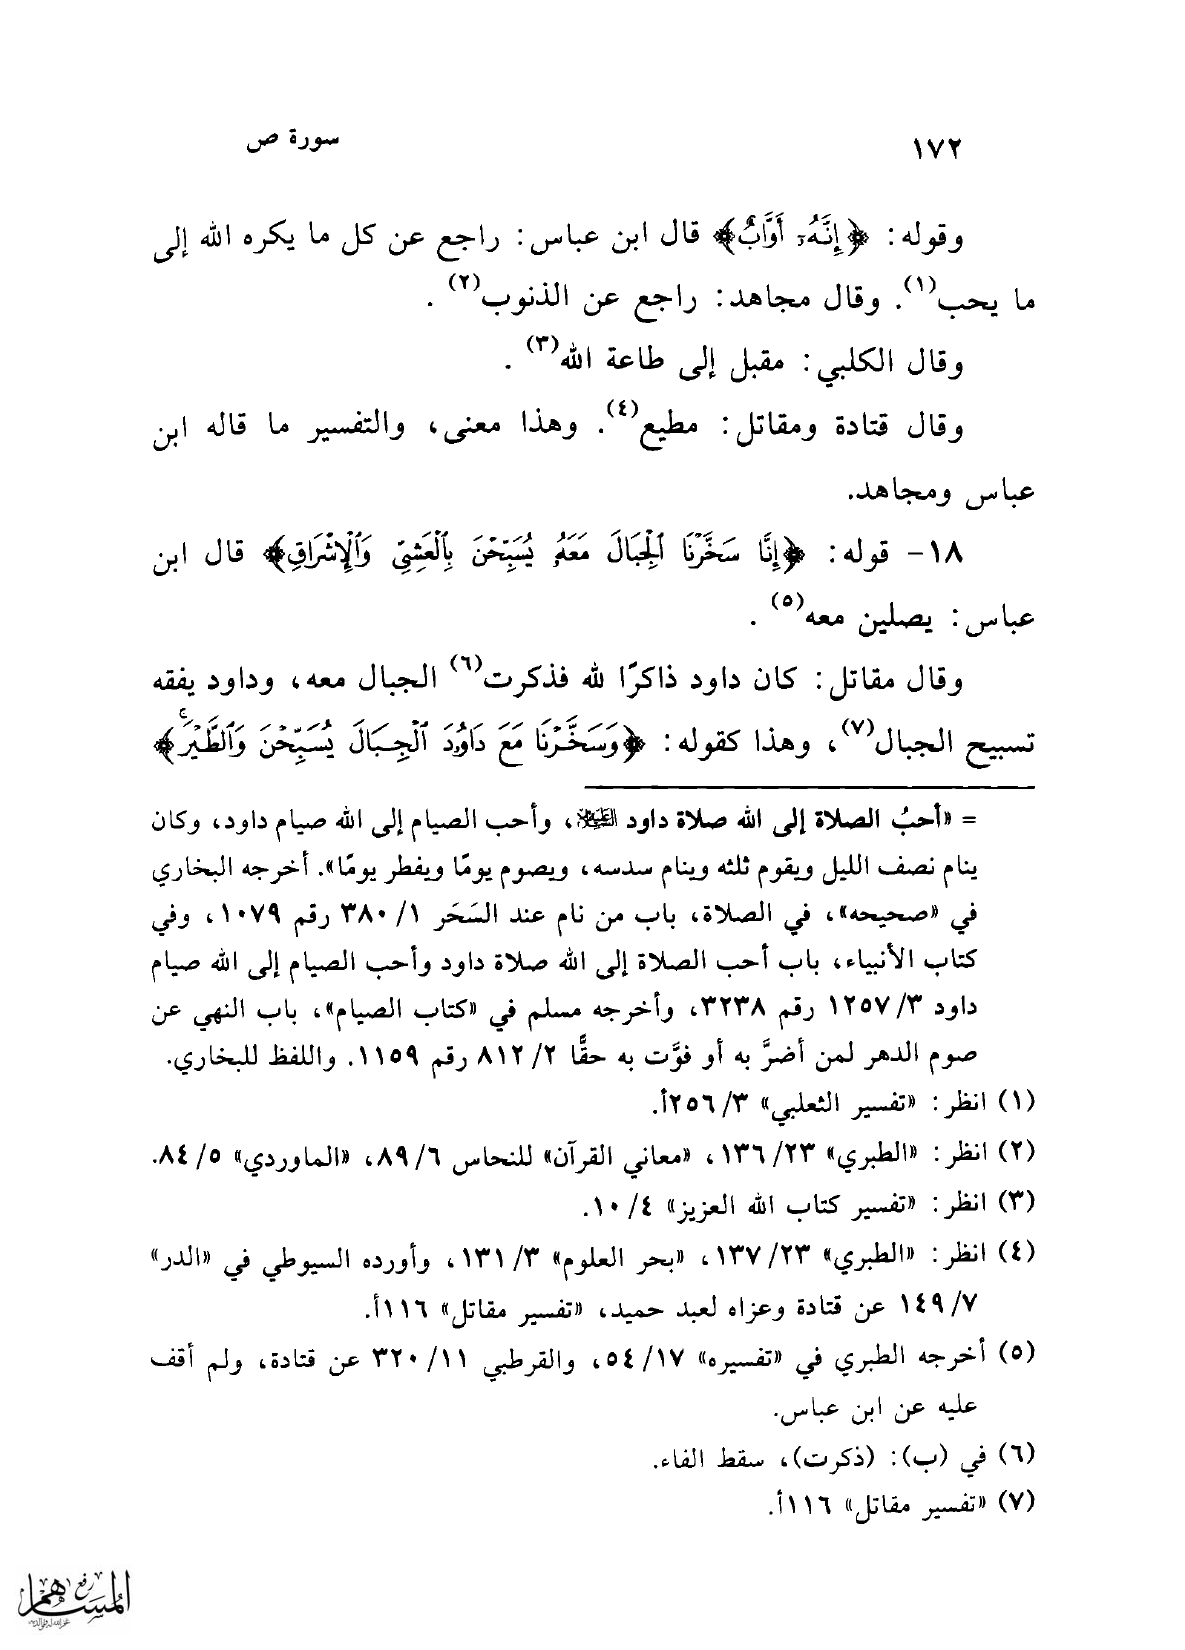 ١٧٢
سورة ص
وقوله: ﴿إِنَّهُۥٓ أَوَّابٌ﴾ قال ابن عباس: راجع عن كل ما يكره الله إلى
ما يحب(١). وقال مجاهد: راجع عن الذنوب(٢) .
وقال الكلبي: مقبل إلى طاعة الله(٣) .
وقال قتادة ومقاتل: مطيع(٤). وهذا معنى، والتفسير ما قاله ابن
عباس ومجاهد.
١٨- قوله: ﴿إِنَّا سَخَّرْنَا ٱلْجِبَالَ مَعَهُۥ يُسَبِّحْنَ بِٱلْعَشِىِّ وَٱلْإِشْرَاقِ﴾ قال ابن
عباس: يصلين معه(٥) .
وقال مقاتل: كان داود ذاكرًا لله فذكرت(٦) الجبال معه، وداود يفقه
تسبيح الجبال(٧)، وهذا كقوله: ﴿وَسَخَّرْنَا مَعَ دَاوُۥدَ ٱلْجِبَالَ يُسَبِّحْنَ وَٱلطَّيْرَ ۚ﴾
= «أحبُ الصلاة إلى الله صلاة داود عليه السلام، وأحب الصيام إلى الله صيام داود، وكان
ينام نصف الليل ويقوم ثلثه وينام سدسه، ويصوم يومًا ويفطر يومًا». أخرجه البخاري
في «صحيحه»، في الصلاة، باب من نام عند السَحَر ١/ ٣٨٠ رقم ١٠٧٩، وفي
كتاب الأنبياء، باب أحب الصلاة إلى الله صلاة داود وأحب الصيام إلى الله صيام
داود ٣/ ١٢٥٧ رقم ٣٢٣٨، وأخرجه مسلم في «كتاب الصيام»، باب النهي عن
صوم الدهر لمن أضرَّ به أو فوَّت به حقًّا ٢/ ٨١٢ رقم ١١٥٩. واللفظ للبخاري.
(١) انظر: «تفسير الثعلبي» ٣/ ٢٥٦أ.
(٢) انظر: «الطبري» ٢٣/ ١٣٦، «معاني القرآن» للنحاس ٦/ ٨٩، «الماوردي» ٥/ ٨٤.
(٣) انظر: «تفسير كتاب الله العزيز» ٤/ ١٠.
(٤) انظر: «الطبري» ٢٣/ ١٣٧، «بحر العلوم» ٣/ ١٣١، وأورده السيوطي في «الدر»
٧/ ١٤٩ عن قتادة وعزاه لعبد حميد، «تفسير مقاتل» ١١٦أ.
(٥) أخرجه الطبري في «تفسيره» ١٧/ ٥٤، والقرطبي ١١/ ٣٢٠ عن قتادة، ولم أقف
عليه عن ابن عباس.
(٦) في (ب): (ذكرت)، سقط الفاء.
(٧) «تفسير مقاتل» ١١٦أ.
رفع
المساهم